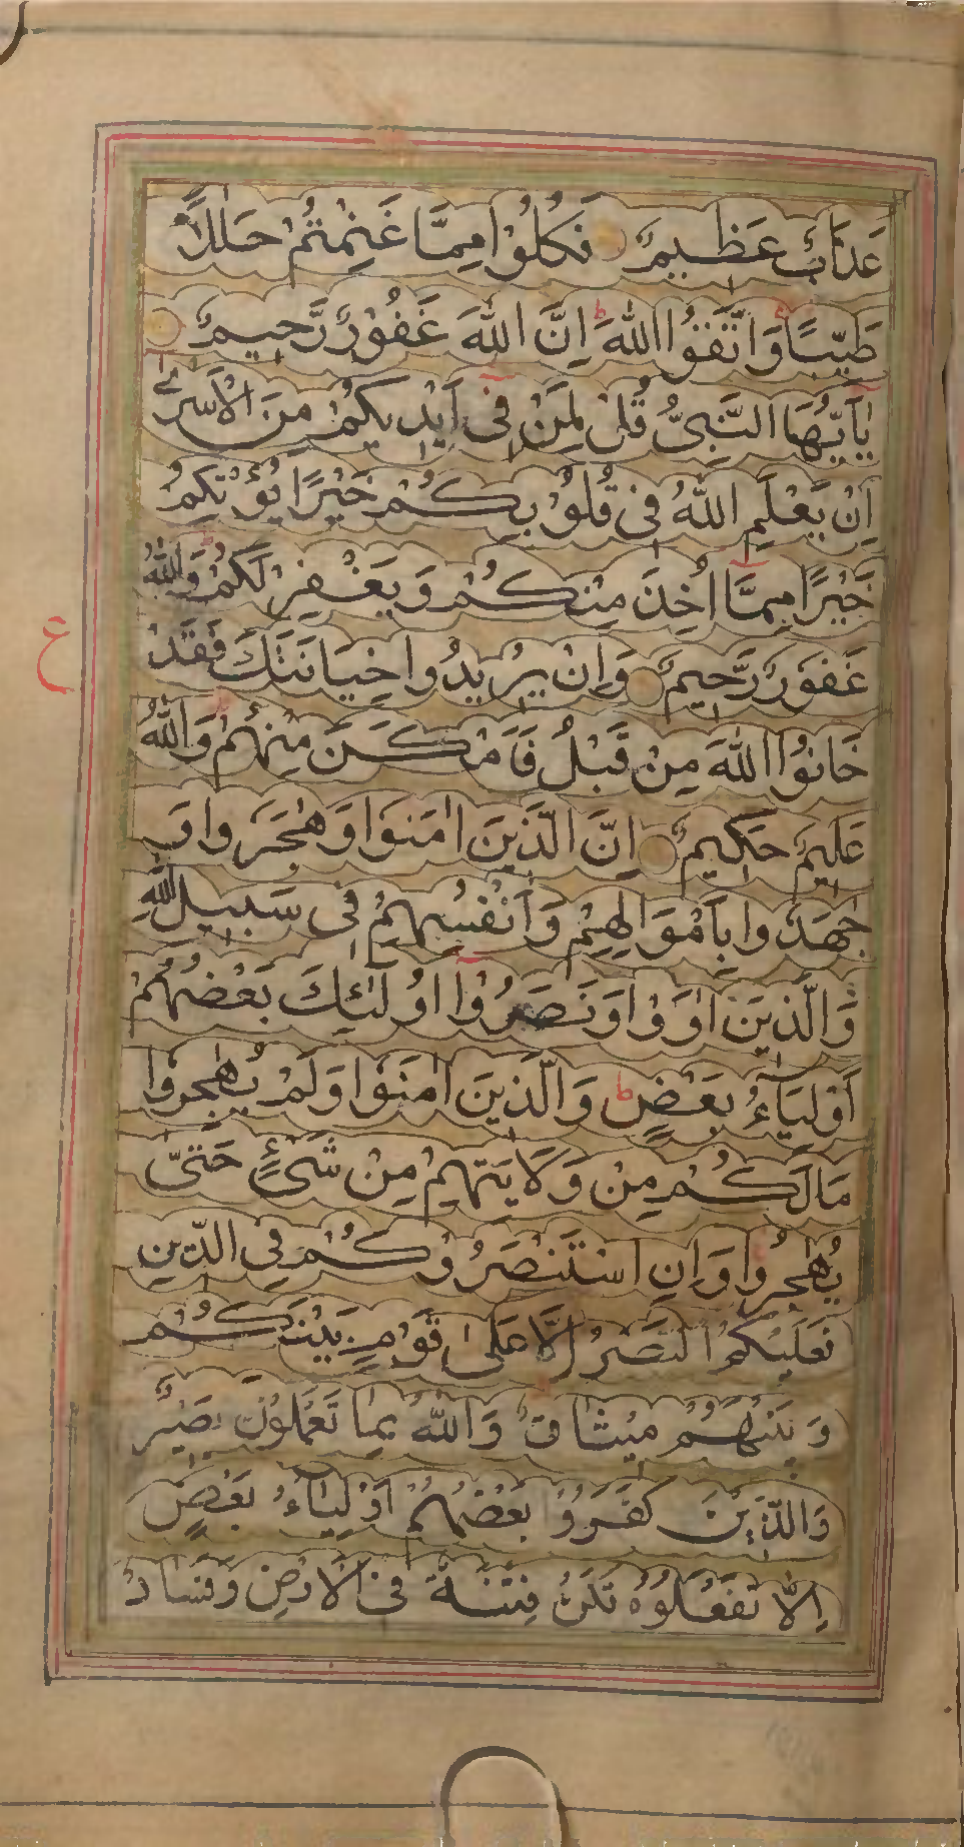 عَذَابٌ عَظِيمٌ فَكُلُوْا مِمَّا غَنِمْتُمْ حَلٰلًا
طَيِّبًا وَاتَّقُوا اللّٰهَ ط اِنَّ اللّٰهَ غَفُوْرٌ رَّحِيمٌ
يٰاَيُّهَا النَّبِىُّ قُلْ لِمَنْ فِىْ اَيْدِيكُمْ مِنَ الْاَسْرٰى
اِنْ يَعْلَمِ اللّٰهُ فِى قُلُوْبِكُمْ خَيْرًا يُؤْتِكُمْ
خَيْرًا مِمَّا اُخِذَ مِنْكُمْ وَيَغْفِرْ لَكُمْ ط وَاللّٰهُ
غَفُوْرٌ رَّحِيمٌ وَاِنْ يُرِيدُوا خِيَانَتَكَ فَقَدْ
ع
خَانُوا اللّٰهَ مِنْ قَبْلُ فَاَمْكَنَ مِنْهُمْ ط وَاللّٰهُ
عَلِيمٌ حَكِيمٌ اِنَّ الَّذِينَ اٰمَنُوا وَهٰجَرُوا وَ
جٰهَدُوا بِاَمْوَالِهِمْ وَاَنْفُسِهِمْ فِى سَبِيلِ اللّٰهِ
وَالَّذِينَ اٰوَوْا وَنَصَرُوْٓا اُولٰئِكَ بَعْضُهُمْ
اَوْلِيَآءُ بَعْضٍ ط وَالَّذِينَ اٰمَنُوا وَلَمْ يُهٰجِرُوا
مَالَكُمْ مِنْ وَلَايَتِهِمْ مِنْ شَىْءٍ حَتّٰى
يُهٰجِرُوا وَاِنِ اسْتَنْصَرُوْكُمْ فِى الدِّينِ
فَعَلَيْكُمُ النَّصْرُ اِلَّا عَلٰى قَوْمٍ بَيْنَكُمْ
وَبَيْنَهُمْ مِيْثَاقٌ وَاللّٰهُ بِمَا تَعْمَلُوْنَ بَصِيْرٌ
وَالَّذِيْنَ كَفَرُوْا بَعْضُهُمْ اَوْلِيَاءُ بَعْضٍ
اِلَّا تَفْعَلُوْهُ تَكُنْ فِتْنَةٌ فِى الْاَرْضِ وَفَسَادٌ